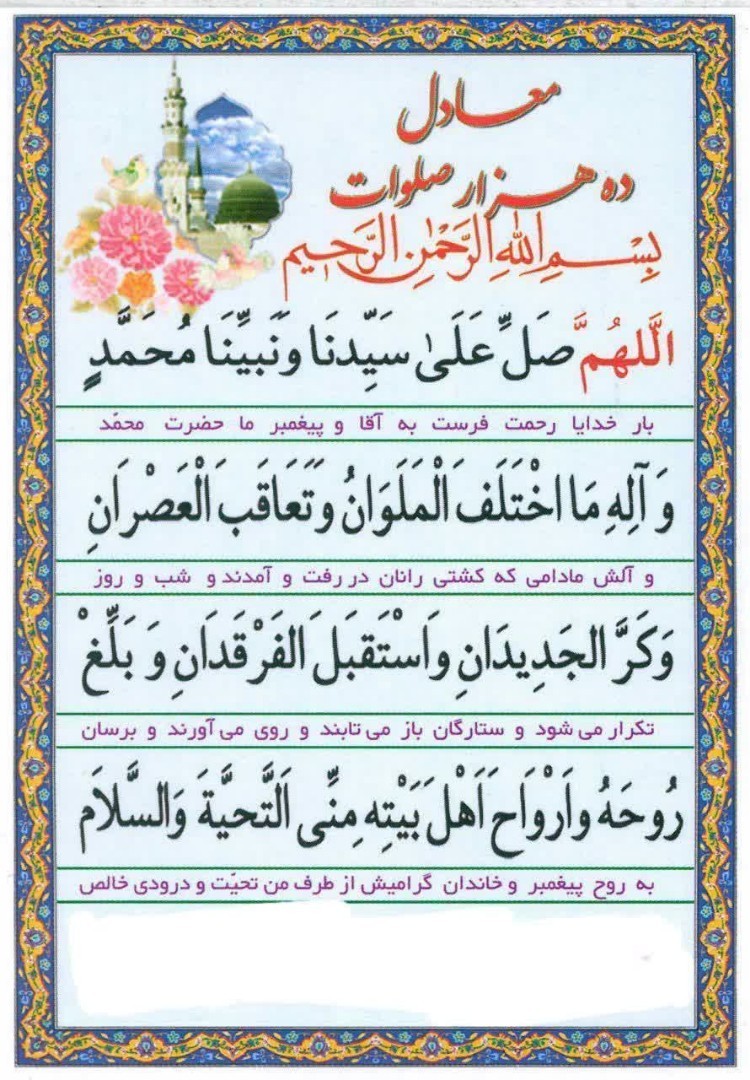 معادل
ده هزار صلوات
بِسْمِ اللهِ الرَّحْمٰنِ الرَّحیمِ
اَللّهُمَّ صَلِّ عَلَىٰ سَيِّدِنَا وَنَبيِّنَا مُحَمَّدٍ
بار خدایا رحمت فرست به آقا و پیغمبر ما حضرت محمّد
وَ آلِهِ مَا اخْتَلَفَ الْمَلَوَانُ وَتَعَاقَبَ الْعَصْرَانِ
و آلش مادامی که کشتی رانان در رفت و آمدند و شب و روز
وَكَرَّ الجَدِيدَانِ وَاسْتَقبَلَ الفَرْقَدَانِ وَ بَلِّغْ
تکرار می شود و ستارگان باز می تابند و روی می آورند و برسان
رُوحَهُ وَاَرْوَاحَ اَهْلَ بَيْتِهِ مِنِّى اَلتَّحيَّةَ وَالسَّلاَم
به روح پیغمبر و خاندان گرامیش از طرف من تحیّت و درودی خالص